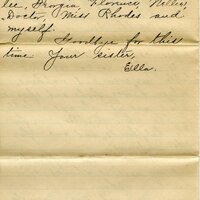 lee, Georgia, Florence, Nellie,
Doctor, Miss Rhodes and
myself.
Goodbye for this
time Your sister,
Ella.